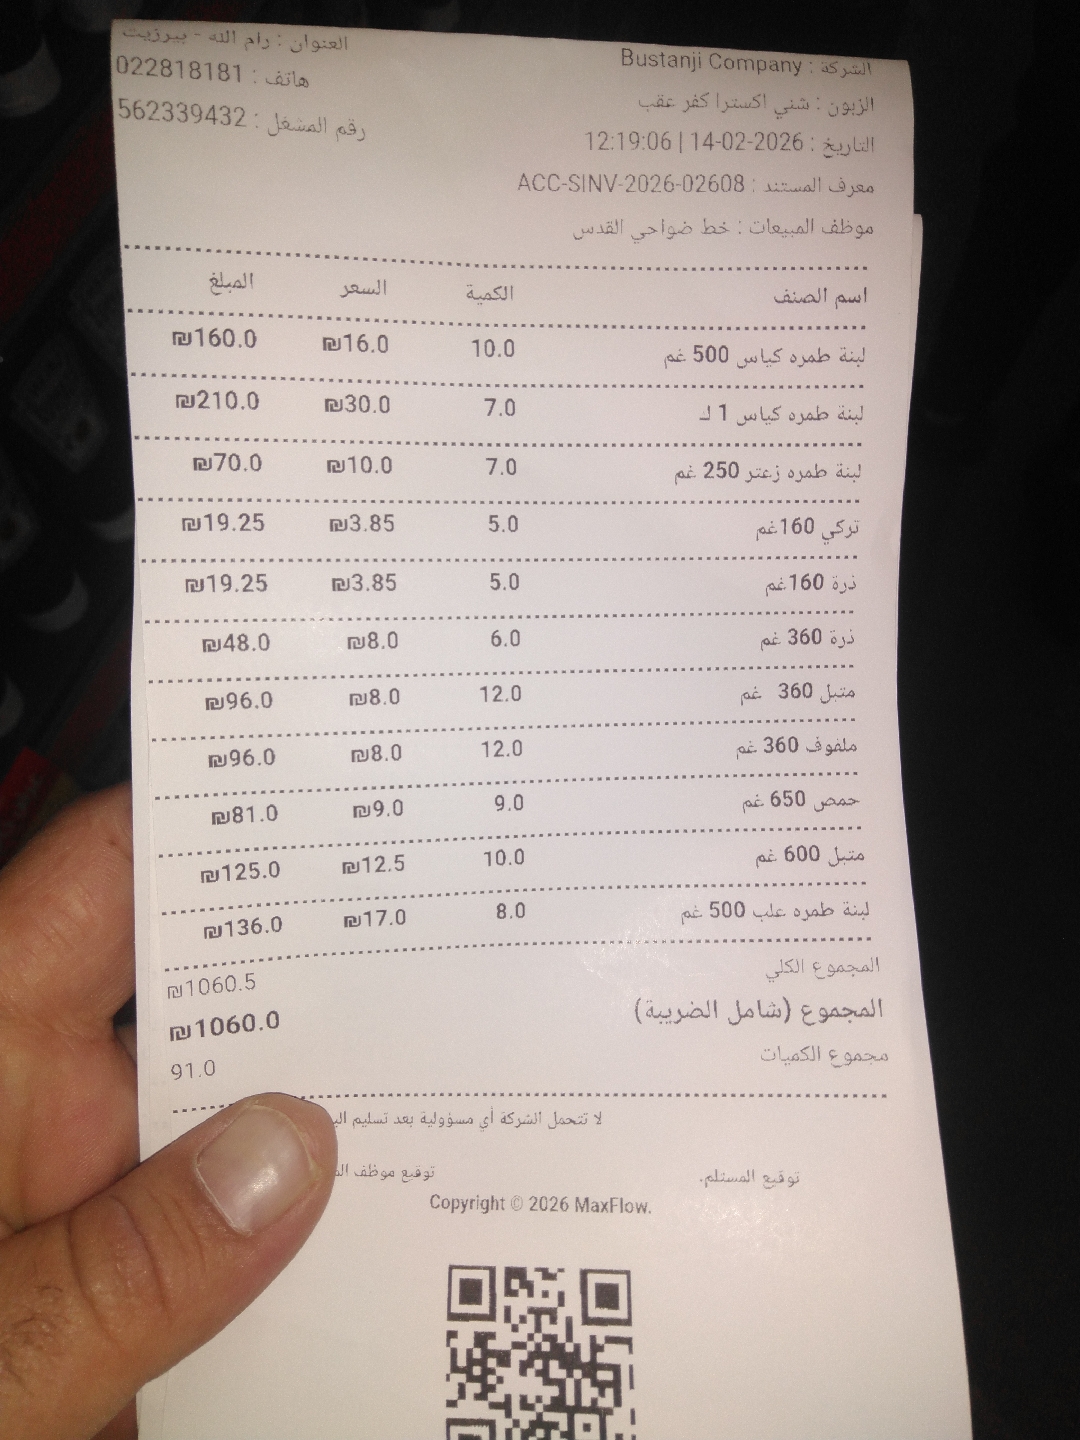 الشركة : Bustanji Company العنوان : رام الله - بيرزيت
الزبون : شني اكسترا كفر عقب هاتف : 022818181
التاريخ : 2026-02-14 | 12:19:06 رقم المشغل : 562339432
معرف المستند : ACC-SINV-2026-02608
موظف المبيعات : خط ضواحي القدس
اسم الصنف الكمية السعر المبلغ
لبنة طمره كياس 500 غم 10.0 ₪16.0 ₪160.0
لبنة طمره كياس 1 ك 7.0 ₪30.0 ₪210.0
لبنة طمره زعتر 250 غم 7.0 ₪10.0 ₪70.0
تركي 160غم 5.0 ₪3.85 ₪19.25
ذرة 160غم 5.0 ₪3.85 ₪19.25
ذرة 360 غم 6.0 ₪8.0 ₪48.0
متبل 360 غم 12.0 ₪8.0 ₪96.0
ملفوف 360 غم 12.0 ₪8.0 ₪96.0
حمص 650 غم 9.0 ₪9.0 ₪81.0
متبل 600 غم 10.0 ₪12.5 ₪125.0
لبنة طمره علب 500 غم 8.0 ₪17.0 ₪136.0
المجموع الكلي ₪1060.5
المجموع (شامل الضريبة) ₪1060.0
مجموع الكميات 91.0
لا تتحمل الشركة أي مسؤولية بعد تسليم
توقيع المستلم. توقيع موظف
Copyright © 2026 MaxFlow.